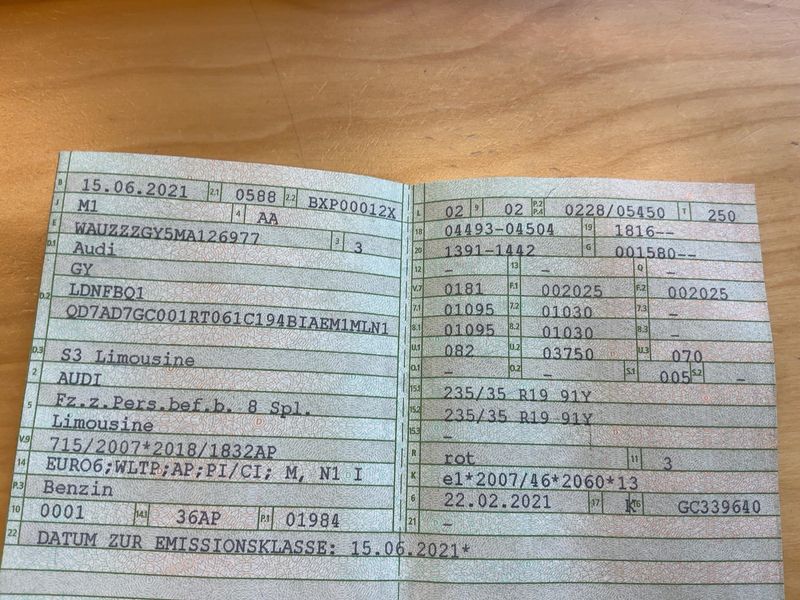 B 15.06.2021 2.1 0588 2.2 BXP00012X
J M1 4 AA
E WAUZZZGY5MA126977 3 3
D.1 Audi
GY
D.2 LDNFBQ1
QD7AD7GC001RT061C194BIAEM1MLN1
D.3 S3 Limousine
2 AUDI
5 Fz.z.Pers.bef.b. 8 Spl.
Limousine
V.9 715/2007*2018/1832AP
14 EURO6;WLTP;AP;PI/CI; M, N1 I
P.3 Benzin
10 0001 14.1 36AP P.1 01984
22 DATUM ZUR EMISSIONSKLASSE: 15.06.2021*
L 02 9 02 P.2 P.4 0228/05450 T 250
18 04493-04504 19 1816--
20 1391-1442 G 001580--
12 – 13 – Q –
V.7 0181 F.1 002025 F.2 002025
7.1 01095 7.2 01030 7.3 –
8.1 01095 8.2 01030 8.3 –
U.1 082 U.2 03750 U.3 070
O.1 – O.2 – S.1 005 S.2 –
15.1 235/35 R19 91Y
15.2 235/35 R19 91Y
15.3 –
R rot 11 3
K e1*2007/46*2060*13
6 22.02.2021 17 K 16 GC339640
21 –